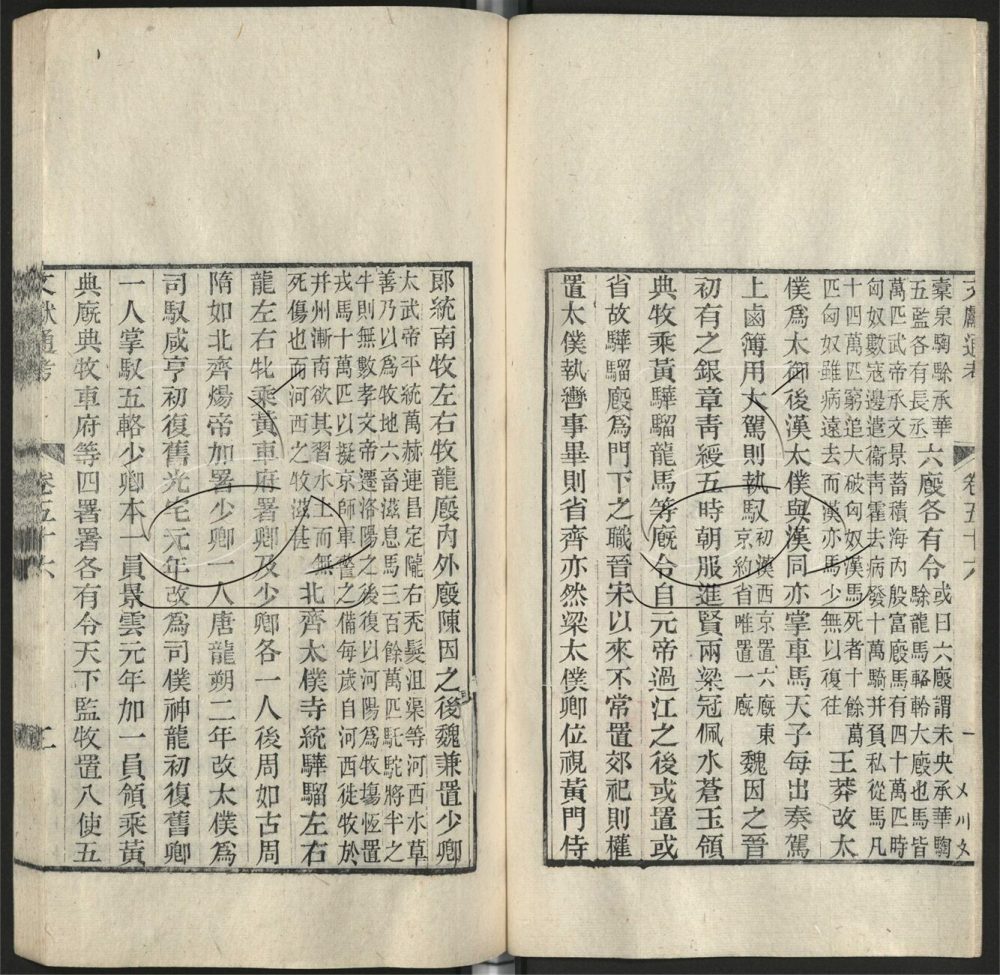 文獻通考 卷五十六
橐泉騊駼承華
五監各有長丞
六廄各有令
或曰六廄謂未央承華騊
駼龍馬輅軨大廄也馬皆
萬匹武帝承文景蓄積海內殷富廄馬有四十萬匹時
匈奴數寇邊遣衞青霍去病發十萬騎并負私從馬凡
十四萬匹窮追大破匈奴漢馬死者十餘萬
匹匈奴雖病遠去而漢亦馬少無以復往
王莽改太
僕爲太御後漢太僕與漢同亦掌車馬天子每出奏駕
上鹵簿用大駕則執馭
初漢西京置六廄東
京約省唯置一廄
魏因之晉
初有之銀章靑綬五時朝服進賢兩梁冠佩水蒼玉領
典牧乘黃驊騮龍馬等廄令自元帝過江之後或置或
省故驊騮廄爲門下之職晉宋以來不常置郊祀則權
置太僕執轡事畢則省齊亦然梁太僕卿位視黃門侍
郎統南牧左右牧龍廄內外廄陳因之後魏兼置少卿
太武帝平統萬赫連昌定隴右禿髮沮渠等河西水草
善乃以爲牧地六畜滋息馬三百餘萬匹駝將半之
牛則無數孝文帝遷洛陽之後復以河陽爲牧塲恆置
戎馬十萬匹以擬京師軍警之備每歲自河西徙牧於
并州漸南欲其習水土而無
死傷也而河西之牧滋甚
北齊太僕寺統驊騮左右
龍左右牝乘黃車府署卿及少卿各一人後周如古周
隋如北齊煬帝加署少卿一人唐龍朔二年改太僕爲
司馭咸亨初復舊光宅元年改爲司僕神龍初復舊卿
一人掌馭五輅少卿本一員景雲元年加一員領乘黃
典廄典牧車府等四署署各有令天下監牧置八使五
文獻通考 卷五十六